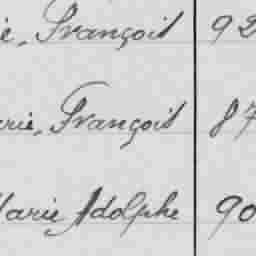 ie, François 92
arie, François 87
Marie Adolphe 90